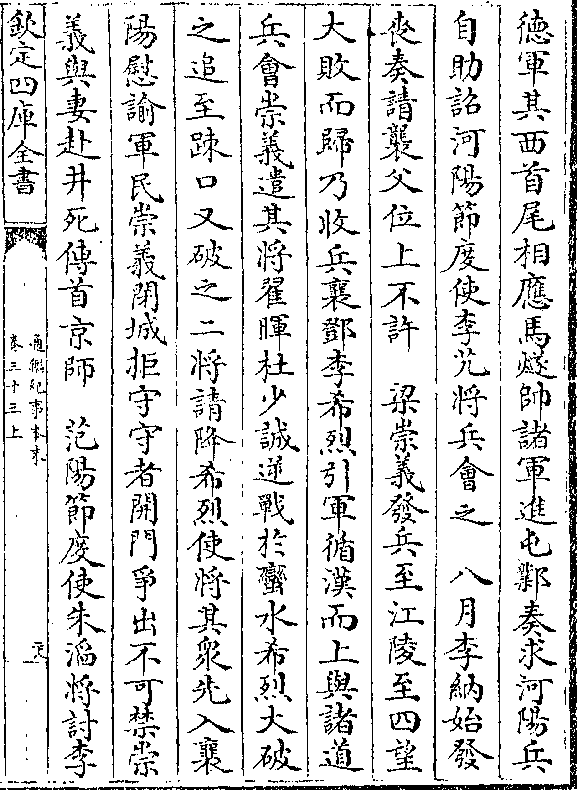 德軍其西首尾相應馬燧帥諸軍進屯鄴奏求河陽兵
自助詔河陽節度使李艽將兵會之　八月李納始發
喪奏請襲父位上不許　梁崇義發兵至江陵至四望
大敗而歸乃收兵襄鄧李希烈引軍循漢而上與諸道
兵會崇義遣其將翟暉杜少誠逆戰於蠻水希烈大破
之追至疎口又破之二將請降希烈使將其衆先入襄
陽慰諭軍民崇義閉城拒守守者開門爭出不可禁崇
義與妻赴井死傳首京師　范陽節度使朱滔將討李
欽定四庫全書
通鑑紀事本末
卷三十三上